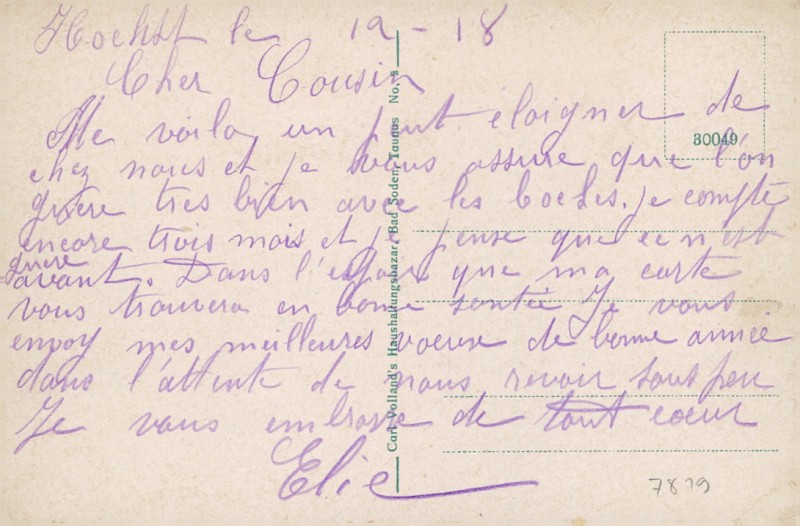 Hochst le 19 - 18
Cher Cousin
Me voila, un peut eloigner de
chez nous et je vous assure que l'on
guere tres bien avec les boches. je compte
encore trois mois et je pense que ce n'est
guere
avant. Dans l'espoir que ma carte
vous trouvera en bonne santée Je vous
envoy mes meilleures voeux de bonne année
dans l'attente de nous revoir sous peu
Je vous embrasse de tout coeur
Elie
Carl Volland's Haushaltungsbazar, Bad Soden, Taunus No. 8
30049
7819